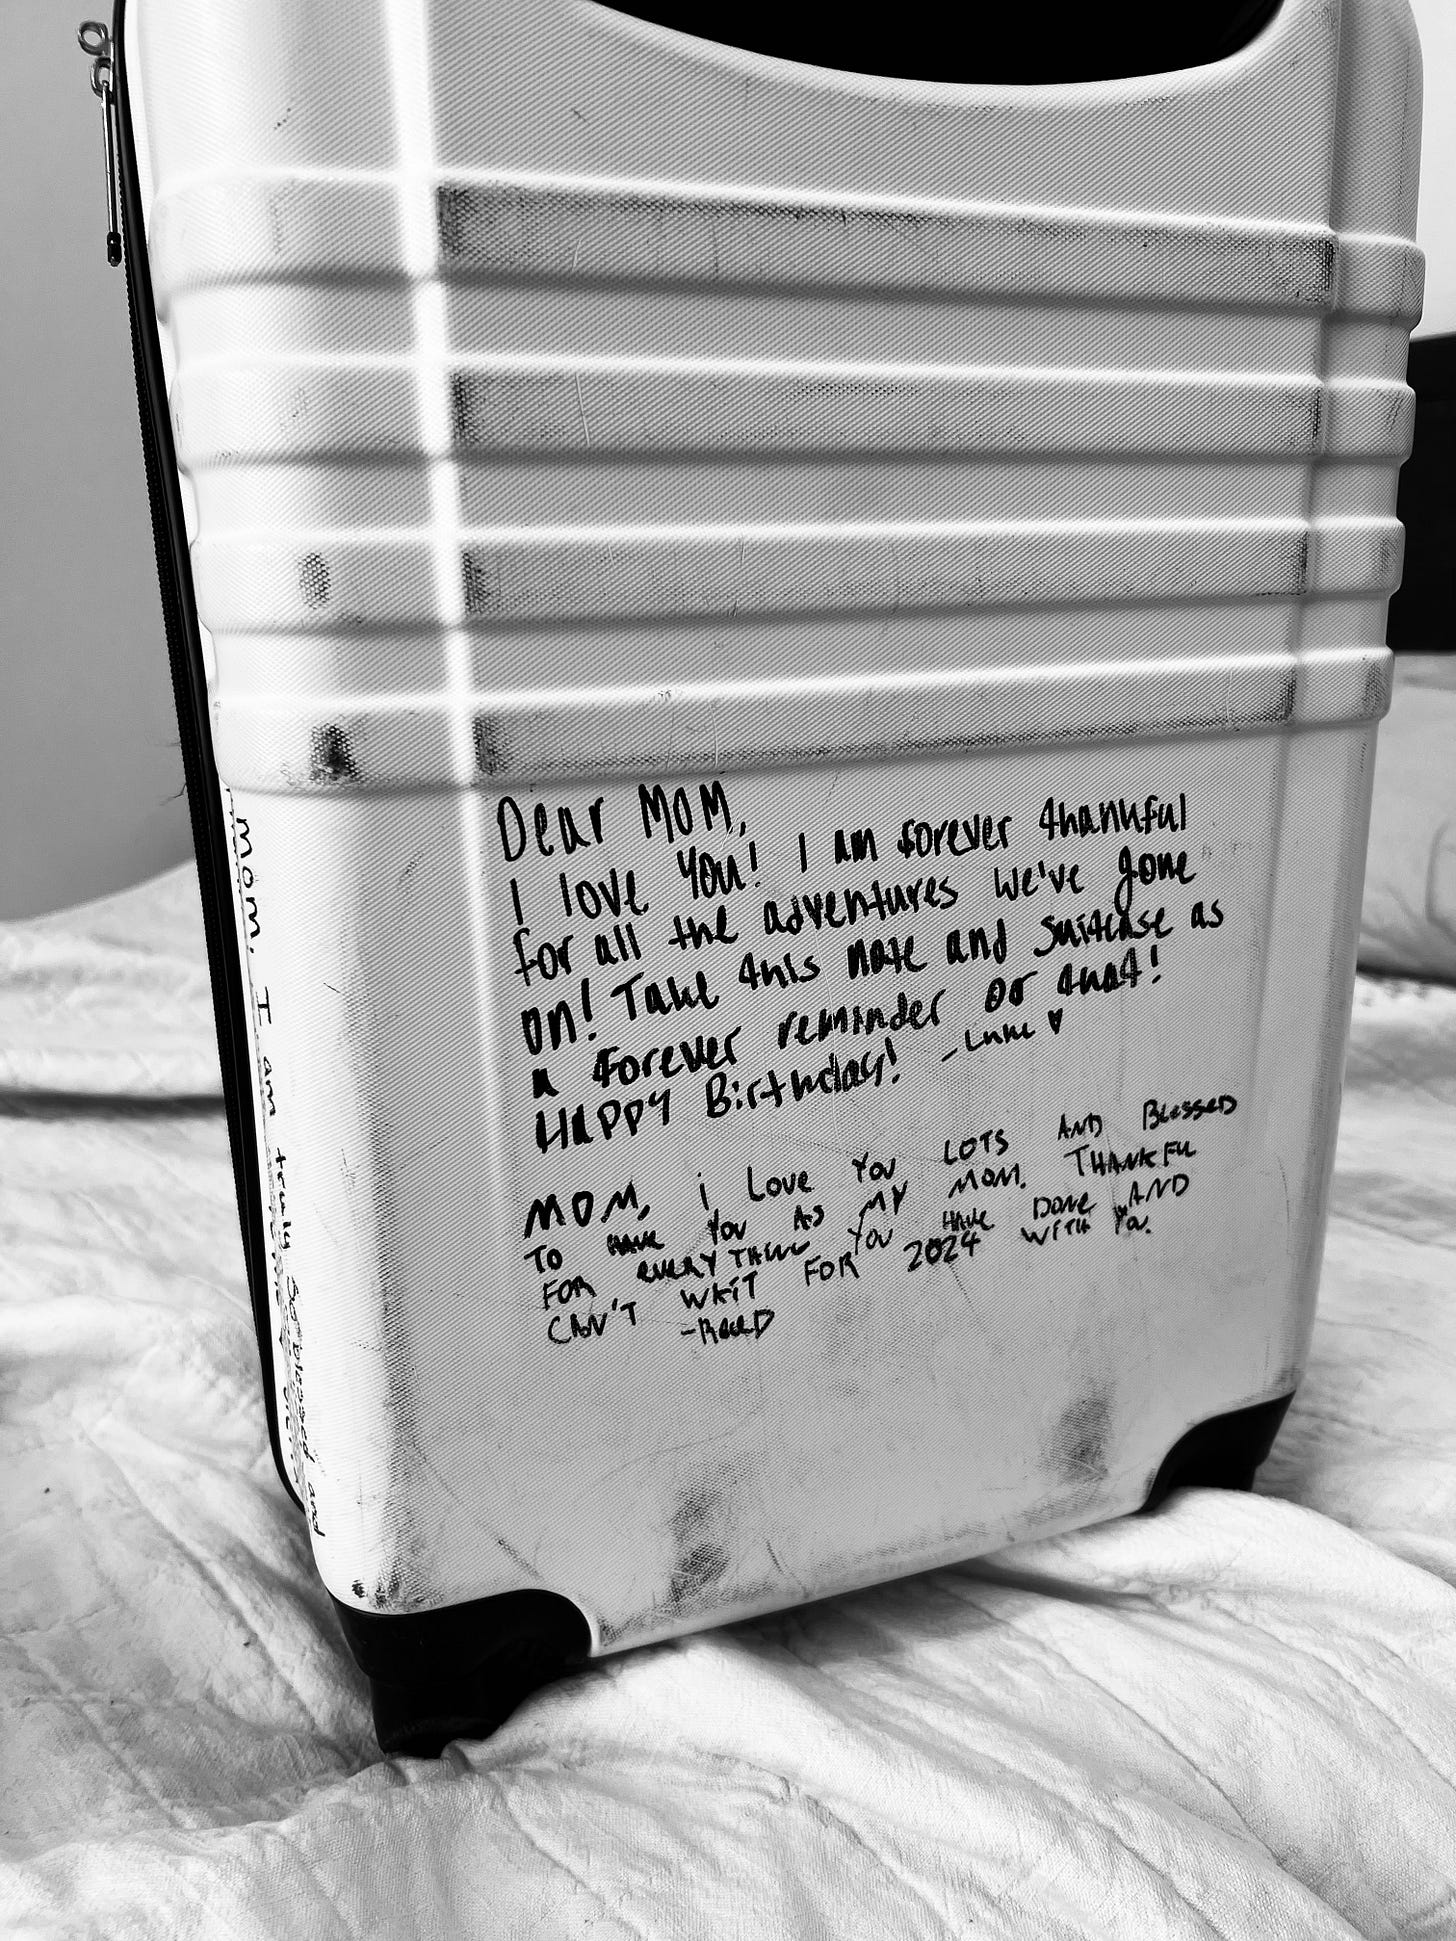 Dear MOM,
I love You! I am forever thankful
for all the adventures we've gone
on! Take this note and suitcase as
a forever reminder of that!
Happy Birthday! -Luke ♥
MOM, i Love You LOTS AND BLESSED
TO HAVE YOU AS MY MOM. THANKFUL
FOR EVERYTHING YOU HAVE DONE AND
CAN'T WAIT FOR 2024 WITH YOU.
-REED
mom, I am truly so blessed and